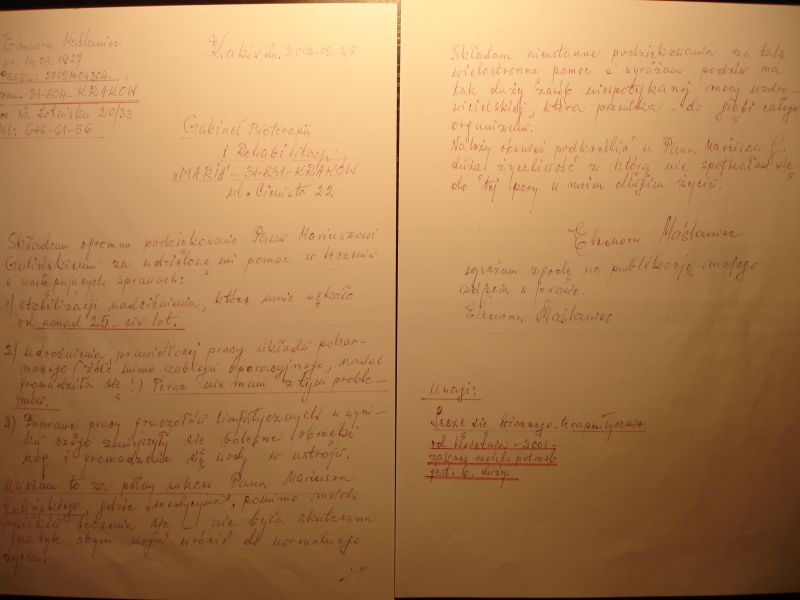 Eleonora Maślaniec
Kraków dn. 2002-05-28
ur. 14.09.1927
PESEL: 27091404304.
zam. 31-804-KRAKÓW
os. Na 210/33
tel: 648-61-56
Gabinet Bioterapii
i Rehabilitacji
"MARIA" - 31-831-KRAKÓW
ul. Ciemista 22
Składam ogromne podziękowanie Panu Mariuszowi
za udzieloną mi pomoc w leczeniu
w następujących sprawach:
1) stabilizacji nadciśnienia, które mnie nękało
od ponad 25-ciu lat.
2) udrożnienia, prawidłowej pracy układu pokar-
mowego (żółć mimo zabiegu operacyjnego, nadal
gromadziła się!) Teraz nie mam z tym proble-
mów.
3) Poprawę pracy gruczołów limfatycznych w wyni-
ku czego zmniejszyły się bolesne obrzęki
nóg i gromadzenie się wody w ustroju.
Uważam to za pełny sukces Pana Mariusza
gdzie "medycyna", pomimo moich
leczenia się nie była skuteczna
abym mogła wrócić do normalnego
życia.
Składam nieustanne podziękowania za tak
wielostronną pomoc i wyrażam podziw na
tak duży zasób niespotykanej mocy uzdro-
wicielskiej, która przenika - do głębi całego
organizmu.
Należy również podkreślić u Pana Mariusza G.
dużą życzliwość z którą nie spotkałam się
do tej pory w moim długim życiu.
Eleonora Maślaniec
wyrażam zgodę na publikację mojego
zdjęcia w prasie.
Eleonora Maślaniec
Uwagi:
Leczę się bioenergo-terapeutycznie
od - 2001 -
zakres moich potrzeb
jest b. duży.